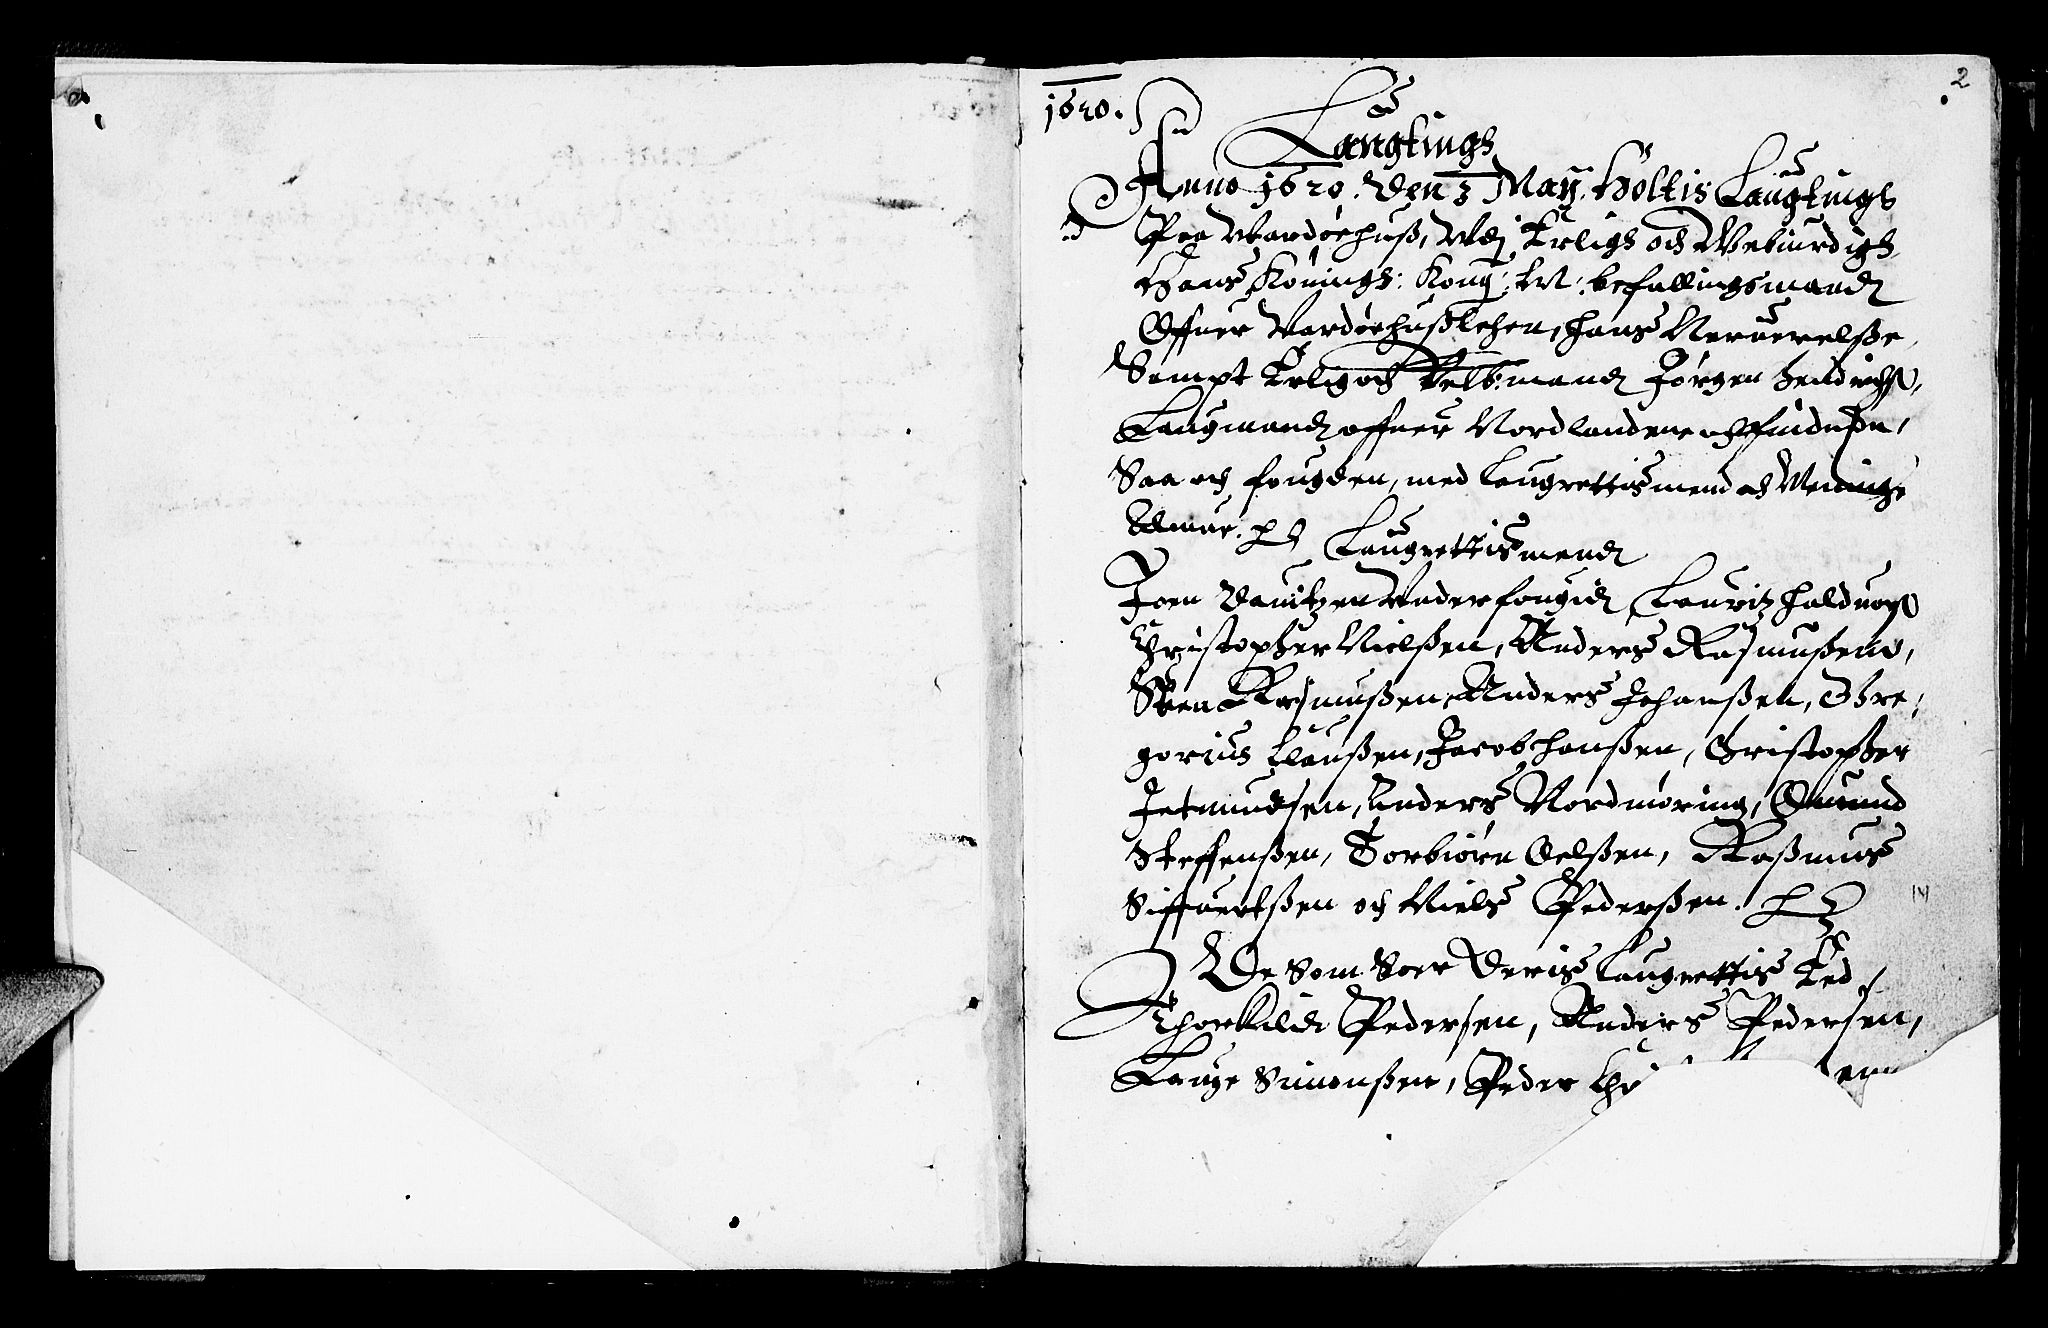 2
1620.
Laugtings
Anno 1620. Den 3 May. Höltis Laugtings
Paa Wardøehuß, Wdj Erligh och Welbiurdigh
Hans Könings: Kong: Mt: befallingsmandt
Offuer Wardøehußlehen, hans Neruerelße,
Sampt Erlig och Velb: mand Jörgen Hendrichß,
Laugmand offuer Nordlandene och
Saa och fougden, med Laugrettismend och Meninge
Almue.
Laugrettismend
Joen Underfougid, Lauritz Halduorß
Christopher Nielßen, Anders Rasmußen,
Steen Rasmußen, Anders Johanßen, Gre,
gorius Claußen, Jacob Hanßen, Christopher
Jetmundsen, Anders Nordmøring, Omund
Steffenßen, Torbiørn Oelßen, Raßmus
Siffuertßen och Niels Pederßen.
De Som Soer Deris Laugrettis Eed
Thorkild Pedersen, Anders Pedersen,
Lauge Simonßen, Peder Chr